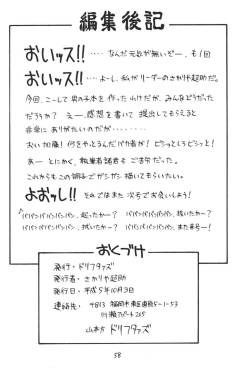 編集後記
おいッス!!・・・・なんだ元気が無いぞー、も1回
おいッス!!・・・・よーし、私がリーダーのさかりや起助だ。
今回、こーして男の子本を作ったわけだが、みんなどうだった
だろうか?えー、感想を書いて提出してもらえると
非常にありがたいのだが・・・・・・・・
おい加藤!何をやっとるんだバカ者が!ビシッとしろビシッと!
あー とにかく、執筆者諸君もご苦労だった。
これからもこの調子でガンガン描いてもらいたい。
よおッし!!それではまた次号でお会いしよう!
♪ババンババンバンバン、起ったかー?ババンババンバンバン、抜いたかー?
ババンババンバンバン、拭いたかー?ババンババンバンバン、また来号ー!
おくづけ
発行・ドリフタァズ
発行者・さかりや起助
発行日・平成5年10月3日
連絡先・〒813 福岡市東区
山本方 ドリフタァズ
58